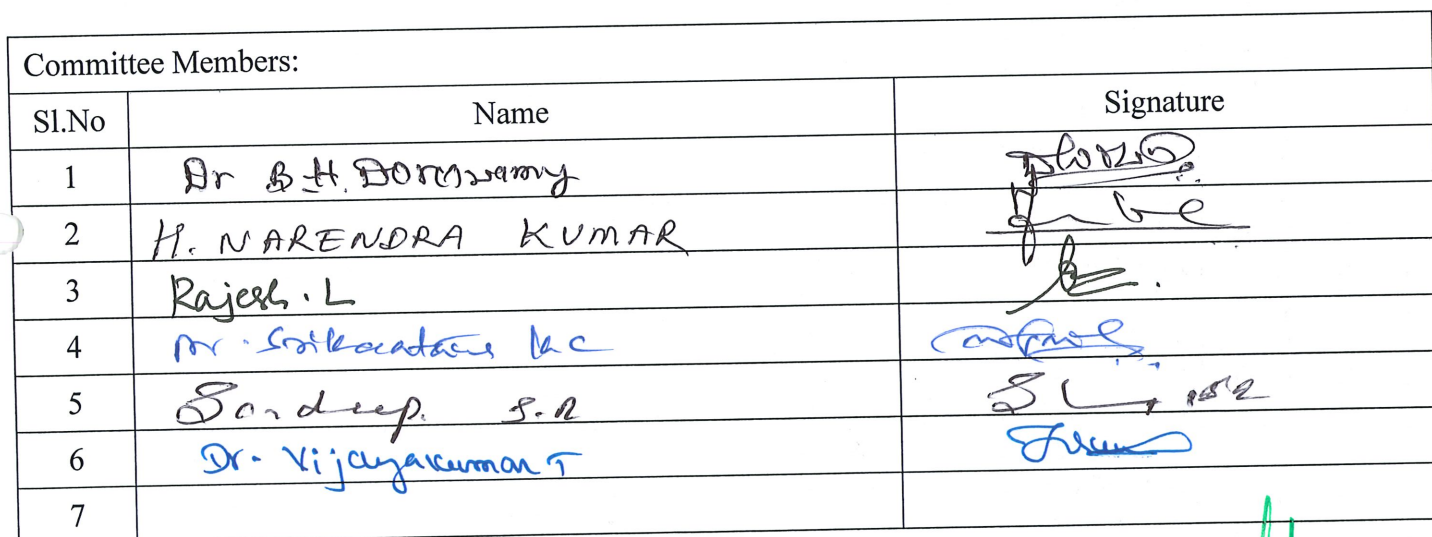 Committee Members:
Sl.No Name Signature
1 Dr B H. Doreswamy
2 H. NARENDRA KUMAR
3 Rajesh. L
4 Dr. Srikantaiah K C
5 Sandeep. S.R
6 Dr. Vijayakumar T
7